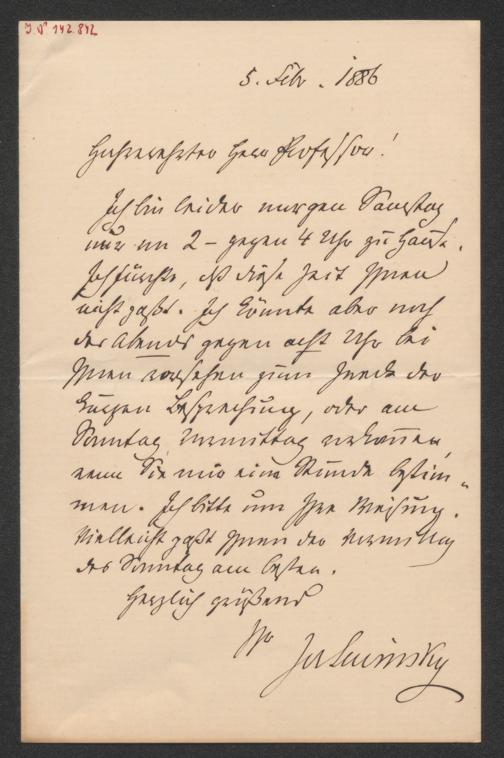 J. N. 142.842
5. Febr. 1886
Hochverehrter Herr Professor!
Ich bin leider morgen Samstag
nur von 2 – gegen 4 Uhr zu Hause.
Ich fürchte, daß diese Zeit Ihnen
nicht paßt. Ich könnte aber noch
des Abends gegen acht Uhr bei
Ihnen vorsehen zum Zweck der
kurzen Besprechung, oder am
Sonntag Vormittag
wenn Sie mir eine Stunde bestim-
men. Ich bitte um Ihre Weisung.
Vielleicht paßt Ihnen der Vormittag
des Sonntag am besten.
Herzlich grüßend
Ihr
JosLewinsky